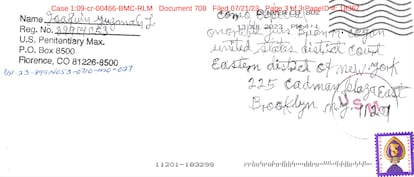 Case 1:09-cr-00466-BMC-RLM Document 708 Filed 07/21/23 Page 3 of 3 PageID #: 18367
Name Joaquin Guzman L.
Reg. No. 89914053
U.S. Penitentiary Max.
P.O. Box 8500
Florence, CO 81226-8500
United States district court
Eastern district of new york
225 cadman plaza East
Brooklyn n.y. 11201
USM
11201-183299